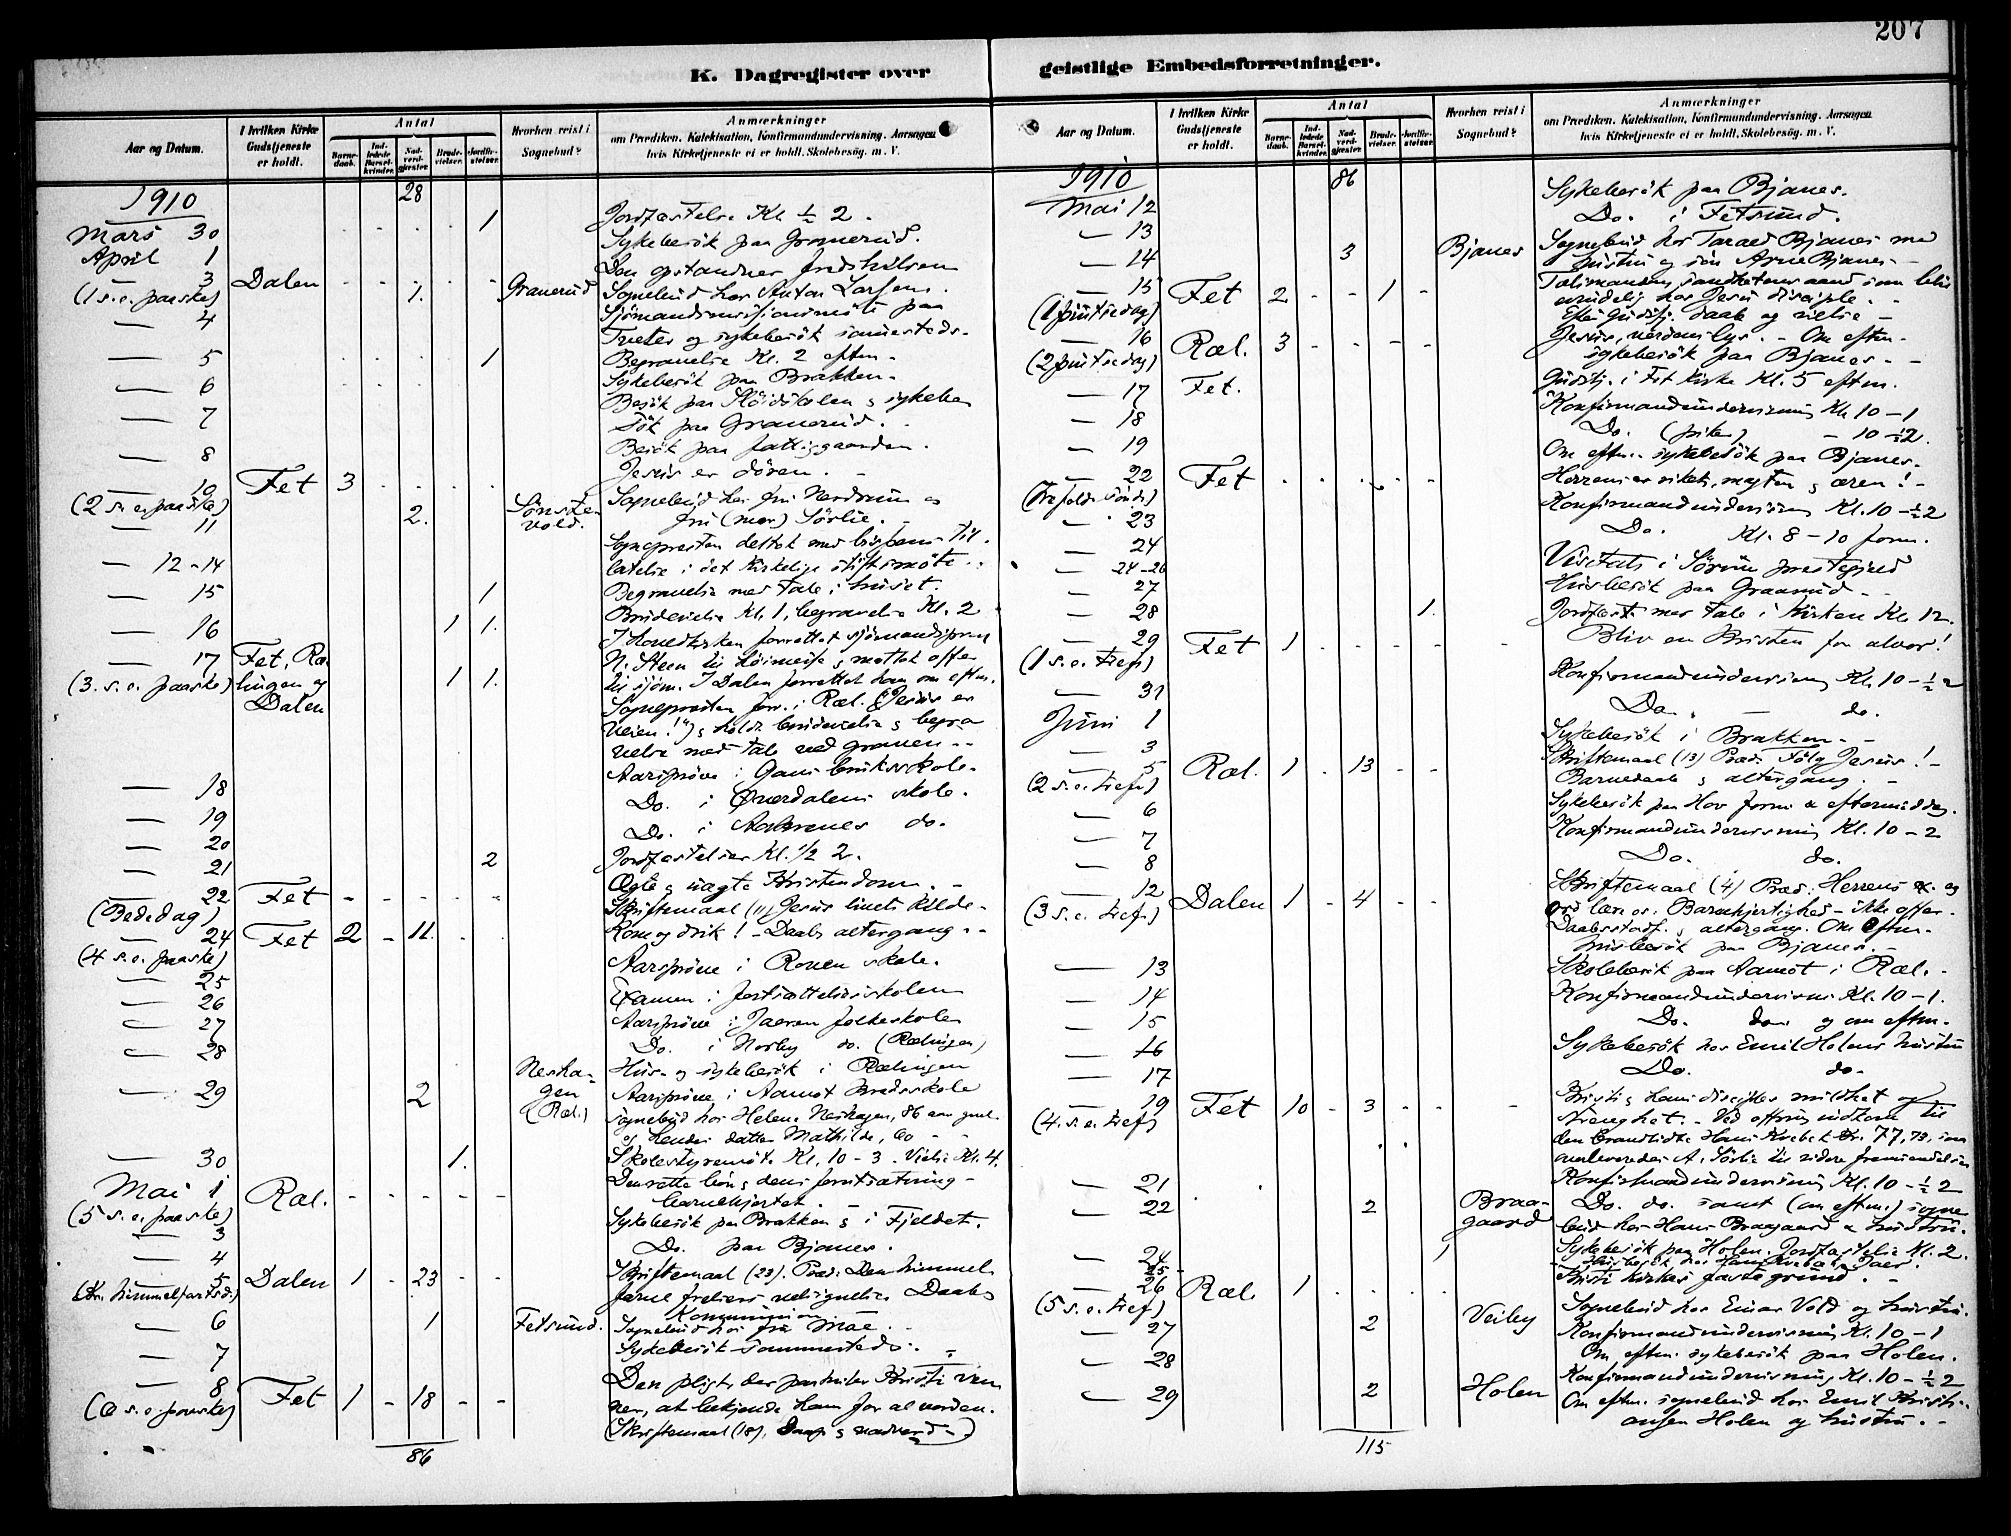 207
K. Dagregister over
Aar og Datum.
I hvilken Kirke Gudstjeneste er holdt.
Antal
Barnedaab.
Indledede Barselkvinder.
Nadverdgjester.
Brudevielser.
Jordfæstelser.
Hvorhen reist i Sognebud?
Anmærkninger
om Prædiken, Katekisation, Konfirmandundervisning. Aarsagen
hvis Kirketjeneste ei er holdt. Skolebesøg. m. V.
1910 28
Mars 30 1 Jordfæstelse Kl. ½ 2.
April 1 Sykebesøk paa Granerud.
3 Dalen Den opstandnes fredshilsen
(1 s. e. paaske) 1. Granerud Sognebud hos Anton Larsen.
4 Sjömandsmissionsmöte paa
Tueter og sykebesök sammesteds.
5 1 Begravelse Kl. 2 eftm.
6 Sykebesök paa Brakken.
7 Besök paa Slöidskolen & sykebe
sök paa Granerud.
8 Besök paa fattiggaarden.
10 Fet 3 Jesus er dören.
(2 s. e. paaske) Sognebud hos fru Nerdrum og
11 2. vold. fru (mor) Sörlie.
12-14 Sognepresten deltok med bispens til-
latelse i det kirkelige stiftsmöte.
15 1 Begravelse med tale i huset.
16 1 1. Brudevielse Kl. 1, begravelse Kl. 2
17 Fet, Ræ- I hovedkirken forrettet sjömandsprest
(3. s. e. paaske) lingen og 1 1. N. Steen til höimesse & mottok offer
Dalen til sjöm. I Dalen forrettet han om eftm.
Sognepresten forr. i Ræl. (Jesus er
Veien!") & holdt brudevielse & begra-
velse med tale ved graven.
18 Aarspröve i Gans bruksskole.
19 Do. i Överdalens skole.
20 Do. i do.
21 2 Jordfæstelser Kl. ½ 2.
22 Fet Ægte & uægte Kristendom.
(Bededag) Skriftemaal (11) Jesus livets kilde.
24 Fet 2 11. Kom og drik! - Daab, altergang.
(4 s. e. paaske)
25 Aarspröve i Roven skole.
26 Examen i fortsættelsesskolen
27 Aarspröve i Jaeren folkeskole
28 Do. i Norby do. (Rælingen)
Neshagen Hus- og sykebesök i Rælingen
29 2 (Ræl.) Aarspröve i Aamot Brødsskole
Sognebud hos Helene Neshagen, 86 aar gml.
og hendes datter Mathilde, 60
30 1. Skolestyremöte Kl. 10-3. Vielse Kl. 4.
Mai 1 Ræl. Den rette bön & dens forutsætning -
(5 s. e. paaske) barnehjertet.
3 Sykebesök paa Brakken & i Fjeldet.
4 Do. paa Bjanes.
5 Dalen 1 23 Skriftemaal (23). Præd: Den himmel-
(Kr. himmelfartsd.) farne frelsers velsignelse Daab
Kommunion
6 1 Fetsund. Sognebud hos fru Moe.
7 Sykebesök sammesteds.
8 Fet 1 18 Den pligt, der paahviler Kristi ven-
(6 s. e. paaske) ner, at bekjende ham for al verden.
(Skriftemaal (18), Daap & nadverd.)
86
geistlige Embedsforretninger.
Aar og Datum.
I hvilken Kirke Gudstjeneste er holdt.
Antal
Barnedaab.
Indledede Barselkvinder.
Nadverdgjester.
Brudevielser.
Jordfæstelser.
Hvorhen reist i Sognebud?
Anmærkninger
om Prædiken, Katekisation, Konfirmandundervisning. Aarsagen
hvis Kirketjeneste ei er holdt. Skolebesøg. m. V.
1910 86
Mai 12 Sykebesök paa Bjanes.
13 Do. i Fetsund.
14 3 Bjanes Sognebud hos Bjanes med
hustru og sön Arne Bjanes.
15 Fet 2 1 Talsmanden, sandhetens aand som blir
(1 pintsedag) hos Jesu disciple.
Efter Gudstj. daab og vielse
16 Ræl. 3 Jesus, verdens lys. - Om eftm.
(2 pintsedag) sykebesök paa Bjanes.
17 Fet. Gudstj. i Fet Kirke Kl. 5 eftm.
18 Konfirmandundervisning Kl. 10-1
19 Do. (piker) - 10-½2.
Om eftm. sykebesök paa Bjanes.
22 Fet Herrens er riket, magten & æren!
(Trefoldr. Sönd.)
23 Konfirmandundervisn. Kl. 10-½2
24 Do. Kl. 8-10 form.
24-26 Visitats i Sörum prestegjeld
27 Husbesök paa Granerud
28 1. Jordfæst. med tale i kirken Kl. 12.
29 Fet 1 Bliv en Kristen for alvor!
(1 s. e. Trefr)
31 Konfirmandundervisning Kl. 10-½2
Juni 1 Do. do.
3 Sykebesök i Brakken.
5 Ræl. 1 13 Skriftemaal (13) Præd: Fölg Jesus!
(2 s. e. trefr) Barnedaab & altergang.
6 Sykebesök paa Hov form. & eftermiddag.
7 Konfirmandundervisning Kl. 10-2
8 Do. do.
12 Dalen 1 4 Skriftemaal (4) Præd: Herrens og
(3 s. e. trefr) ord lære os: Barmhjertighed - ikke offer.
Daabsstadf. & altergang. Om Eftm.
husbesök paa Bjanes.
13 Skolebesök paa Aamot i Ræl.
14 Konfirmandundervisn. Kl. 10-1.
15 Do. do. og om eftm.
16 Sykebesök hos Emil Holens hustru
17 Do. do.
19 Fet 10 3 Kristi & hans disciples mildhet og
(4. s. e. trefr) strenghet. - Ved ofring indkom til
den brandlidte Hans Kr. 77,73, som
overleveredes A. Sörlie til videre fremsendelse
21 Konfirmandundervisning Kl. 10-½2
22 2 Braa- Do. do. samt (om eftm.) sogne-
gaard bud hos Hans Braagaard & hustru.
24 1 Sykebesök paa Holen. Jordfæstelse Kl. 2.
25
26 Ræl. 1 Kristi kirkes faste grund.
(5 s. e. tref)
27 2 Veiby Sognebud hos Einar Vold og hustru.
Konfirmandundervisning Kl. 10-1
28 Om eftm. sykebesök paa Holen.
29 2 Holen Konfirmandundervisning Kl. 10-½2
Om eftm. sognebud hos Emil Kristi-
ansen Holen og hustru.
115